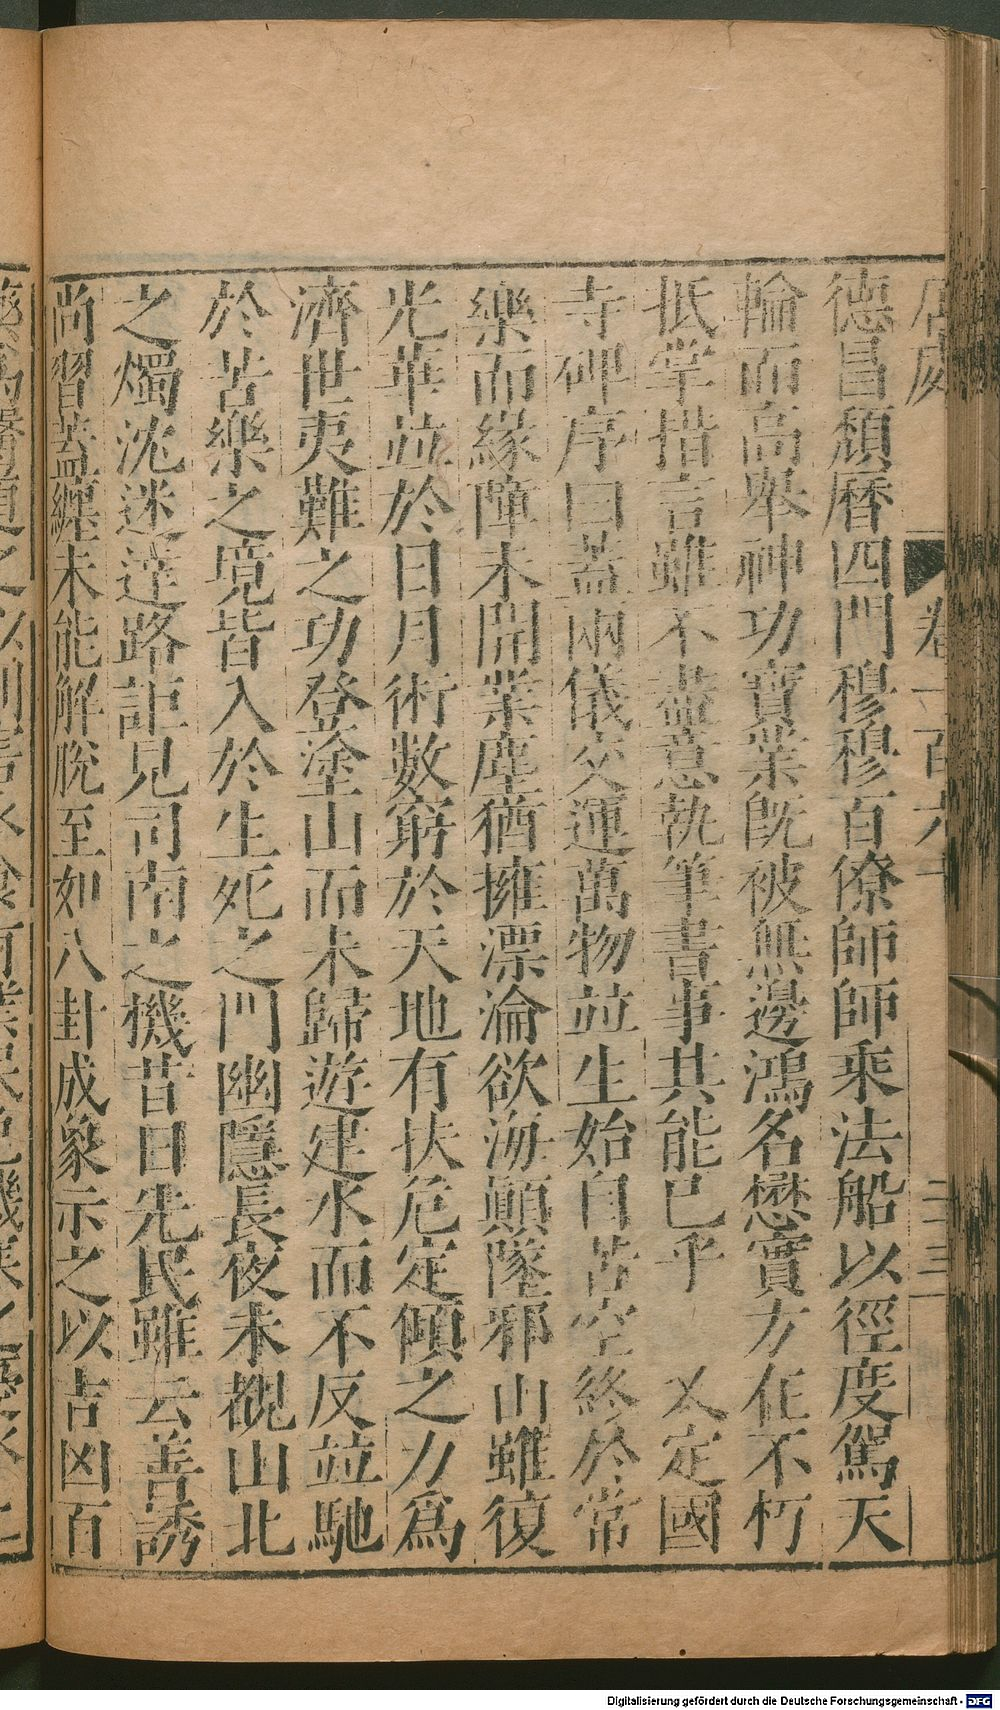 卷一百六十
二十三
德昌頹曆四門穆穆百僚師師乘法船以徑度駕天
輪而高舉神功寶業旣被無邊鴻名懋實方在不朽
抵掌措言雖不盡意執筆書事其能巳乎 又定國
寺碑序曰蓋兩儀交運萬物竝生始自苦空終於常
樂而緣障未開業塵猶擁漂淪欲海顛墜邪山雖復
光華竝於日月術數窮於天地有扶危定傾之力爲
濟世夷難之功登塗山而未歸遊建水而不反竝馳
於苦樂之境皆入於生死之門幽隱長夜未覩山北
之燭沈迷遠路詎見司南之機昔日先民雖云善誘
尚習蓋纏未能解脫至如八卦成象示之以吉凶百
Digitalisierung gefördert durch die Deutsche Forschungsgemeinschaft - DFG